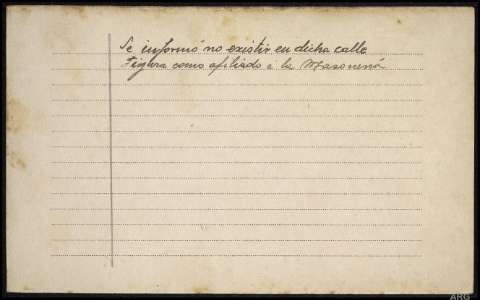 Se informó no existir en dicha calle
Figura como afiliado a la Masonería
ARG